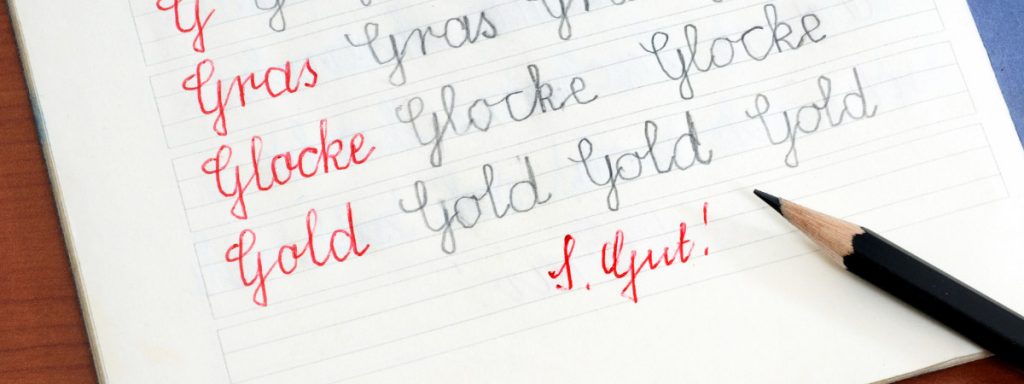 G G
Gras Gras Gras
Glocke Glocke Glocke
Gold Gold Gold Gold
S. Gut!